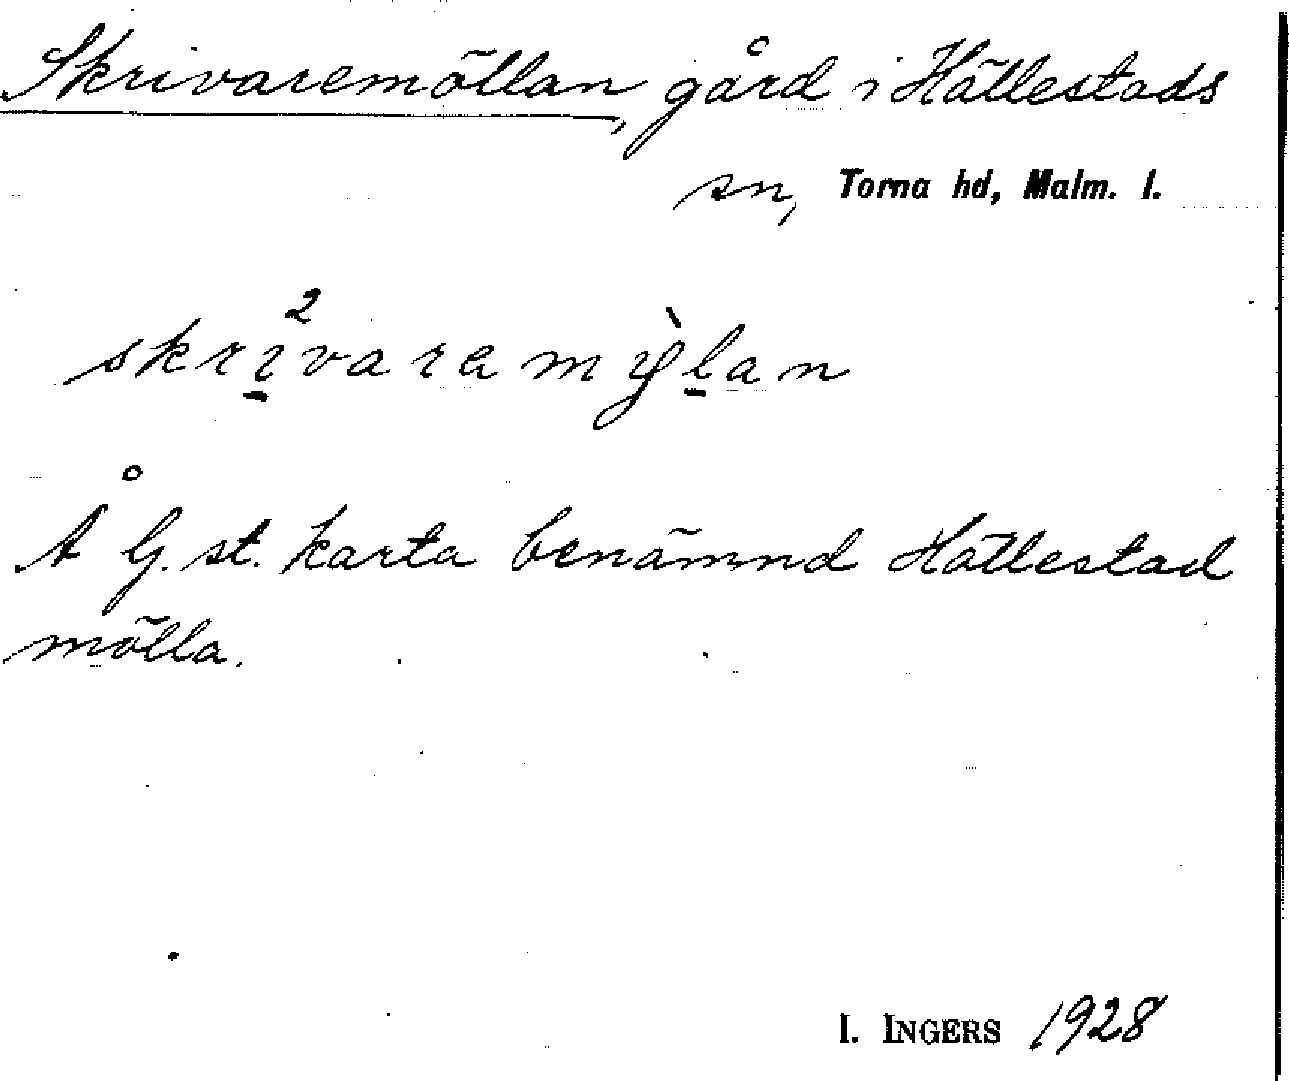 Skrivaremöllan, gård i Hällestads
sn, Torna hd, Malm. l.
skrì̱²varamỳḻan
Å G. st. karta benämnd Hällestad
mölla.
I. INGERS 1928